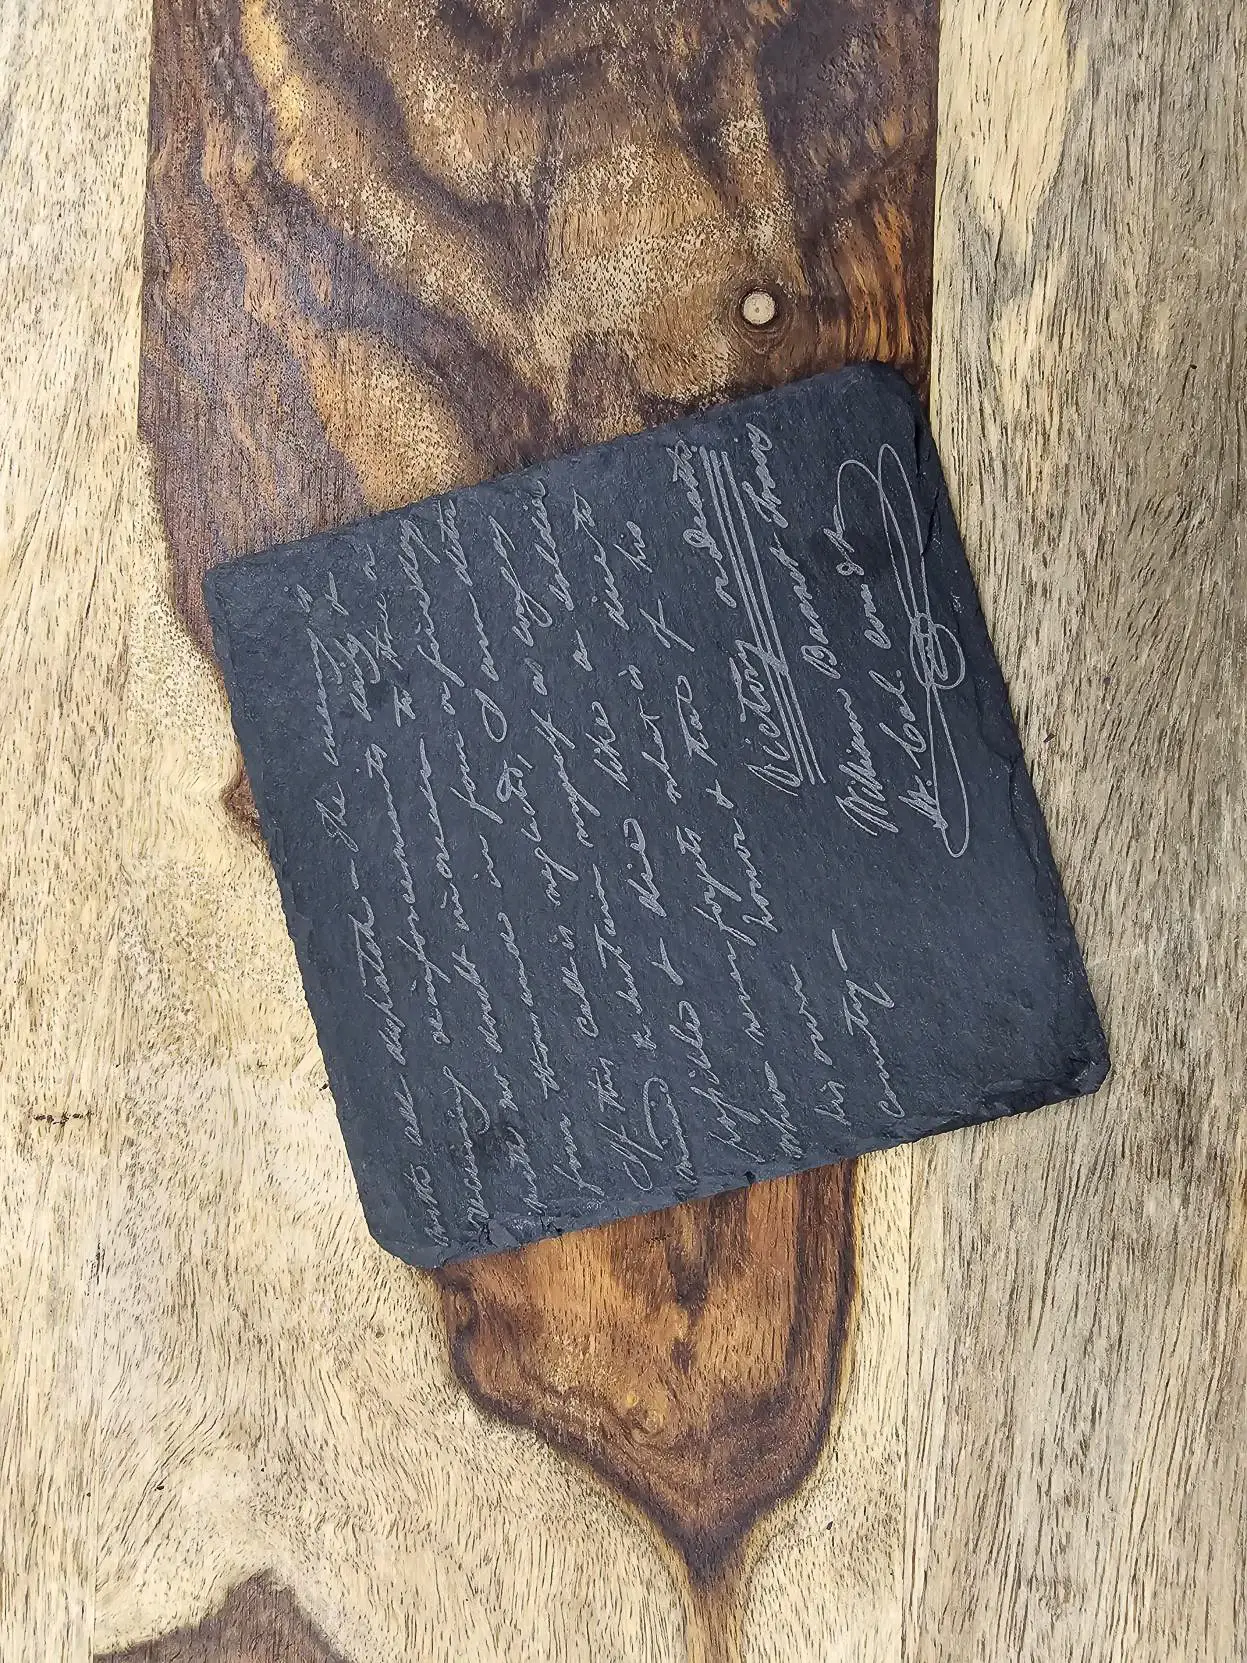 with all dispatch — The enemy is
receiving reinforcements daily &
will no doubt increase to three or
four thousand in four or five days
If this call is neglected, I am deter
mined to sustain myself as long as
possible & die like a soldier
who never forgets what is due to
his own honor & that of his
country —
Victory or Death
William Barret Travis
Lt. Col. comdt